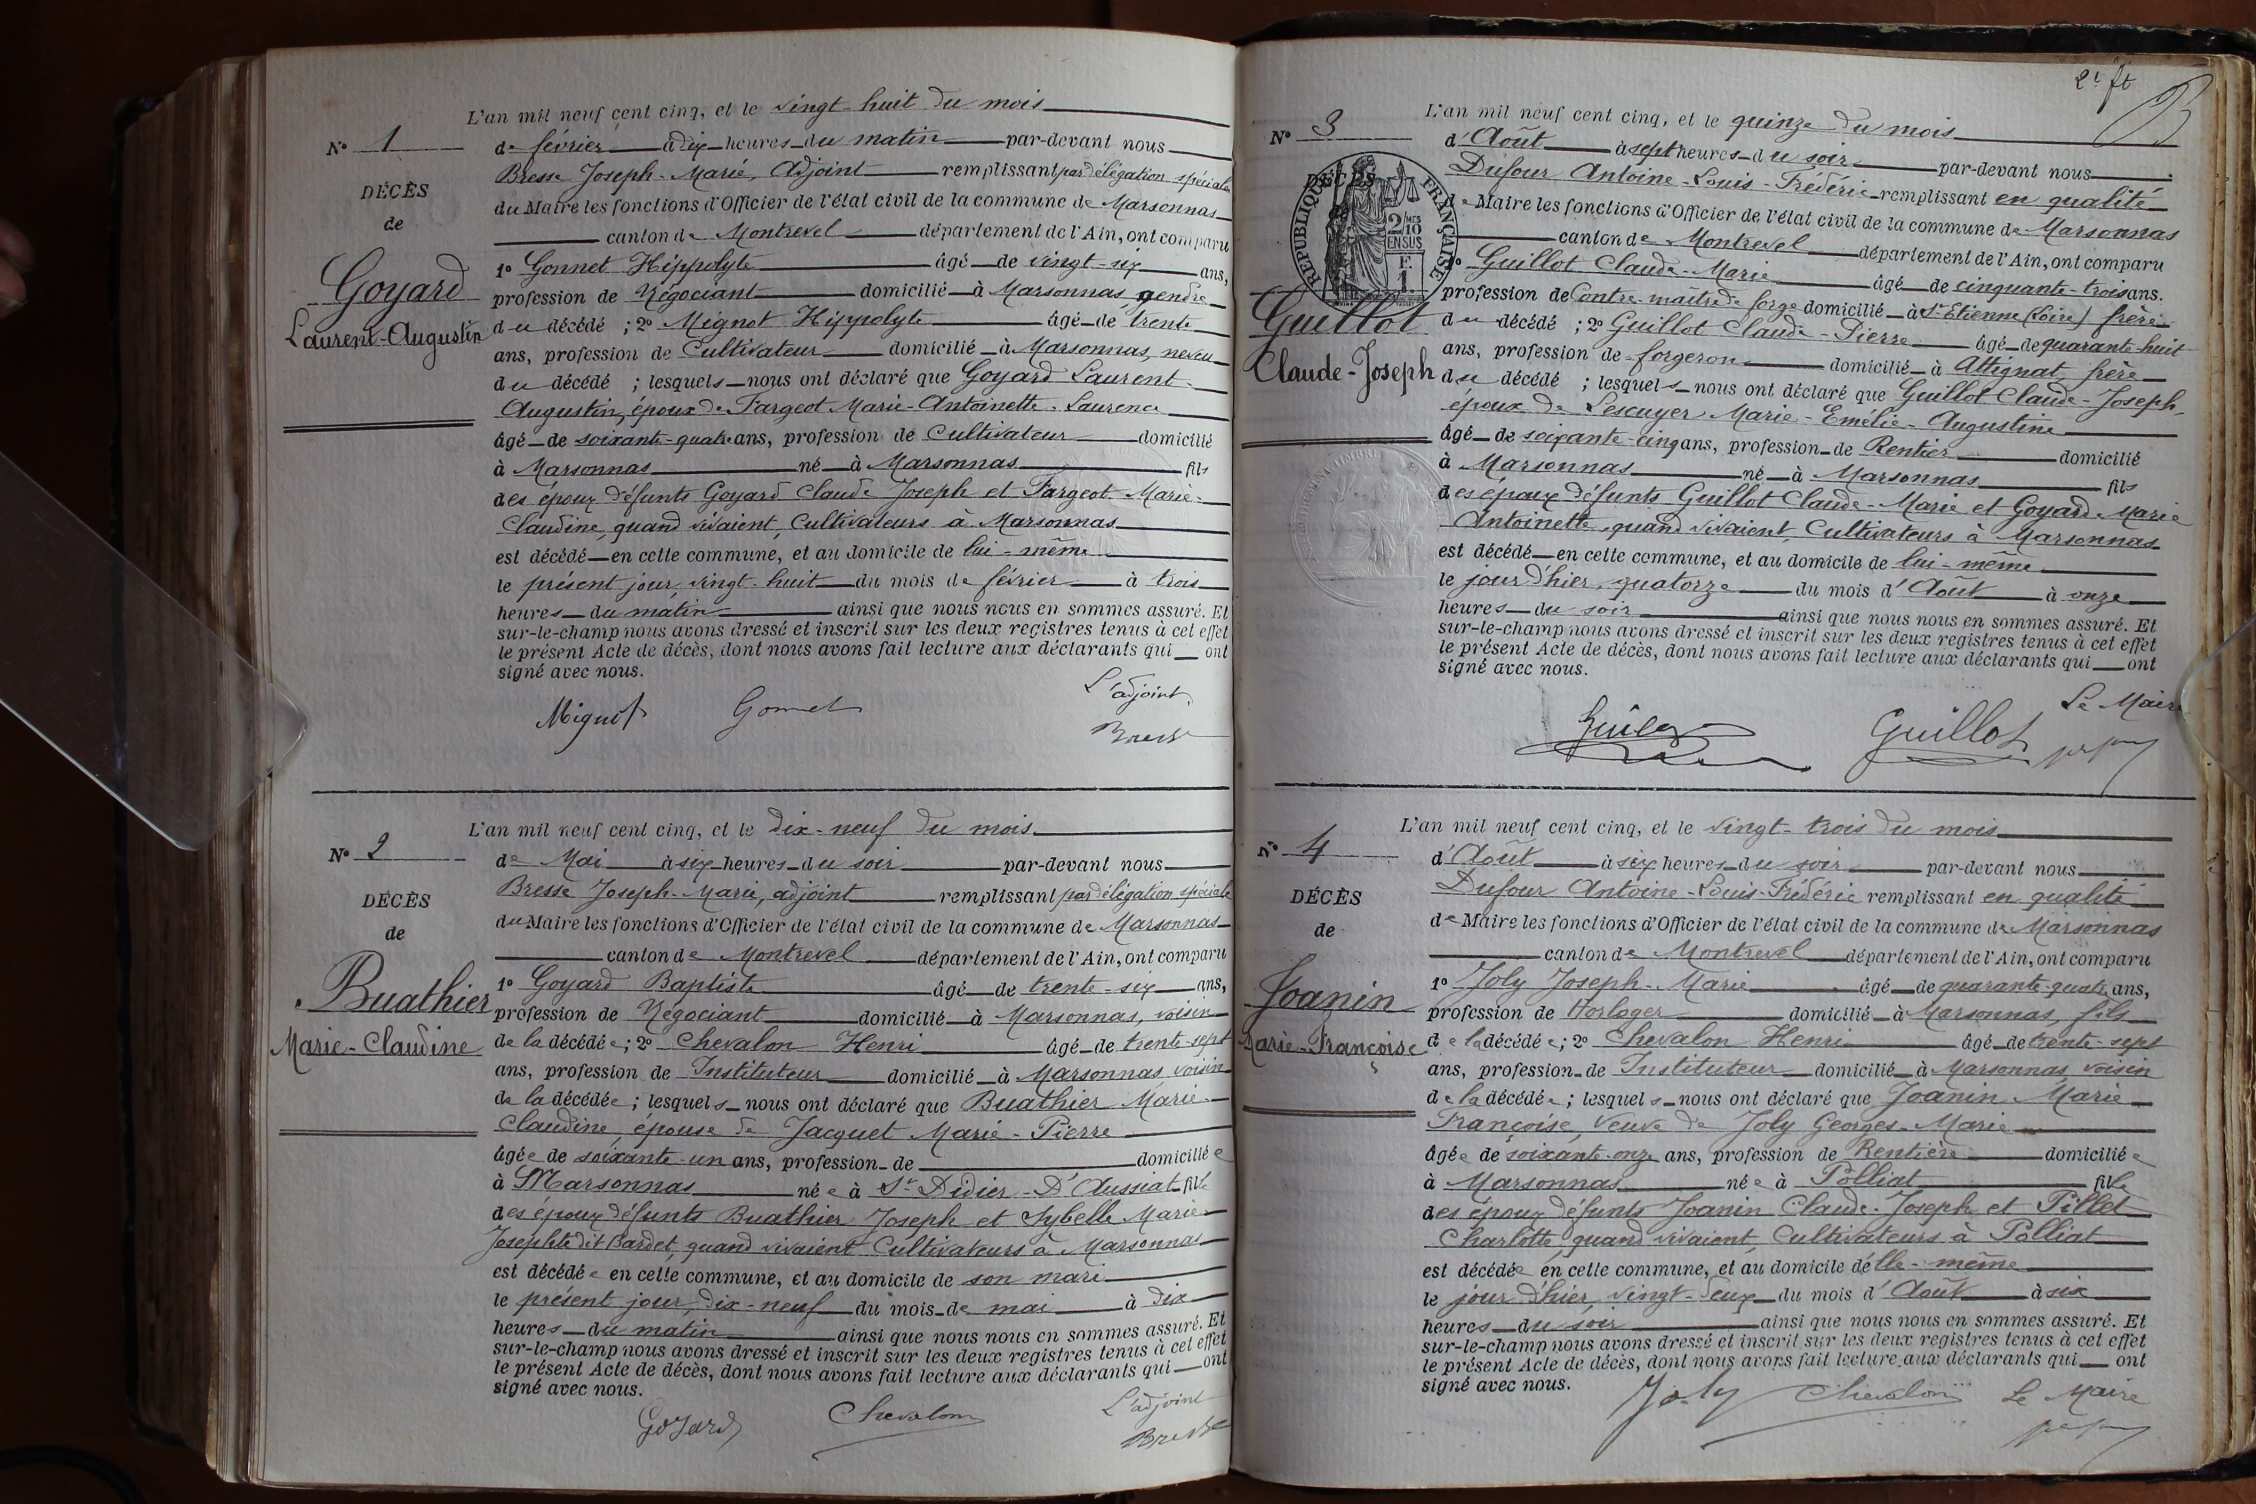 L'an mil neuf cent cinq, et le vingt-huit du mois
N° 1
de février à dix heures du matin par-devant nous
Bresse Joseph-Marie, Adjoint remplissant par délégation spéciale
DÉCÈS
du Maire les fonctions d'Officier de l'état civil de la commune de Marsonnas
de
canton de Montrevel département de l'Ain, ont comparu
Goyard
Laurent-Augustin
1° Gonnet Hippolyte âgé de vingt-six ans,
profession de Négociant domicilié à Marsonnas, gendre
du décédé ; 2° Mignot Hippolyte âgé de trente
ans, profession de Cultivateur domicilié à Marsonnas, neveu
du décédé ; lesquels nous ont déclaré que Goyard Laurent-
Augustin, époux de Fargeot Marie-Antoinette-Laurence
âgé de soixante-quatre ans, profession de Cultivateur domicilié
à Marsonnas né à Marsonnas fils
des époux défunts Goyard Claude Joseph et Fargeot Marie-
Claudine, quand vivaient, Cultivateurs à Marsonnas
est décédé en cette commune, et au domicile de lui-même
le présent jour vingt-huit du mois de février à trois
heures du matin ainsi que nous nous en sommes assuré. Et
sur-le-champ nous avons dressé et inscrit sur les deux registres tenus à cet effet
le présent Acte de décès, dont nous avons fait lecture aux déclarants qui ont
signé avec nous.
L'adjoint,
Mignot Gonnet Bresse
L'an mil neuf cent cinq, et le dix-neuf du mois
N° 2
de Mai à six heures du soir par-devant nous
Bresse Joseph-Marie, adjoint remplissant par délégation spéciale
DÉCÈS
du Maire les fonctions d'Officier de l'état civil de la commune de Marsonnas
de
canton de Montrevel département de l'Ain, ont comparu
Buathier
Marie-Claudine
1° Goyard Baptiste âgé de trente-six ans,
profession de Négociant domicilié à Marsonnas, voisin
de la décédée ; 2° Chevalon Henri âgé de trente-sept
ans, profession de Instituteur domicilié à Marsonnas, voisin
de la décédée ; lesquels nous ont déclaré que Buathier Marie-
Claudine, épouse de Jacquet Marie-Pierre
âgée de soixante-un ans, profession de domiciliée
à Marsonnas née à St Didier-D'Aussiat fille
des époux défunts Buathier Joseph et Sybelle Marie-
Josephte dit Bardet, quand vivaient Cultivateurs à Marsonnas
est décédée en cette commune, et au domicile de son mari
le présent jour, dix-neuf du mois de mai à dix
heures du matin ainsi que nous nous en sommes assuré. Et
sur-le-champ nous avons dressé et inscrit sur les deux registres tenus à cet effet
le présent Acte de décès, dont nous avons fait lecture aux déclarants qui ont
signé avec nous.
L'adjoint
Goyard Chevalon Bresse
2e ft
L'an mil neuf cent cinq, et le quinze du mois
N° 3
d'Août à sept heures du soir par-devant nous
Dufour Antoine-Louis-Frédéric remplissant en qualité
DÉCÈS
RÉPUBLIQUE FRANÇAISE
2/10 EN SUS
de Maire les fonctions d'Officier de l'état civil de la commune de Marsonnas
canton de Montrevel département de l'Ain, ont comparu
Guillot
Claude-Joseph
1° Guillot Claude-Marie âgé de cinquante-trois ans.
profession de Contre-maître de forge domicilié à St-Etienne (Loire) frère
du décédé ; 2° Guillot Claude-Pierre âgé de quarante-huit
ans, profession de forgeron domicilié à Attignat frère
du décédé ; lesquels nous ont déclaré que Guillot Claude-Joseph,
époux de Lescuyer Marie-Emélie-Augustine
âgé de soixante-cinq ans, profession de Rentier domicilié
à Marsonnas né à Marsonnas fils
des époux défunts Guillot Claude-Marie et Goyard Marie
Antoinette, quand vivaient, Cultivateurs à Marsonnas
est décédé en cette commune, et au domicile de lui-même
le jour d'hier, quatorze du mois d'Août à onze
heures du soir ainsi que nous nous en sommes assuré. Et
sur-le-champ nous avons dressé et inscrit sur les deux registres tenus à cet effet
le présent Acte de décès, dont nous avons fait lecture aux déclarants qui ont
signé avec nous.
Le Maire
Guillot
L'an mil neuf cent cinq, et le vingt-trois du mois
N° 4
d'Août à six heures du soir par-devant nous
Dufour Antoine-Louis-Frédéric remplissant en qualité
DÉCÈS
de Maire les fonctions d'Officier de l'état civil de la commune de Marsonnas
de
canton de Montrevel département de l'Ain, ont comparu
Joanin
Marie-Françoise
1° Joly Joseph-Marie âgé de quarante-quatre ans,
profession de Horloger domicilié à Marsonnas, fils
de la décédée ; 2° Chevalon Henri âgé de trente-sept
ans, profession de Instituteur domicilié à Marsonnas, voisin
de la décédée ; lesquels nous ont déclaré que Joanin Marie
Françoise, Veuve de Joly Georges-Marie
âgée de soixante-onze ans, profession de Rentière domiciliée
à Marsonnas née à Polliat fille
des époux défunts Joanin Claude-Joseph et Pillet
Charlotte, quand vivaient, Cultivateurs à Polliat
est décédée en cette commune, et au domicile d'elle-même
le jour d'hier, vingt-deux du mois d'Août à six
heures du soir ainsi que nous nous en sommes assuré. Et
sur-le-champ nous avons dressé et inscrit sur les deux registres tenus à cet effet
le présent Acte de décès, dont nous avons fait lecture aux déclarants qui ont
signé avec nous.
Joly Chevalon Le Maire